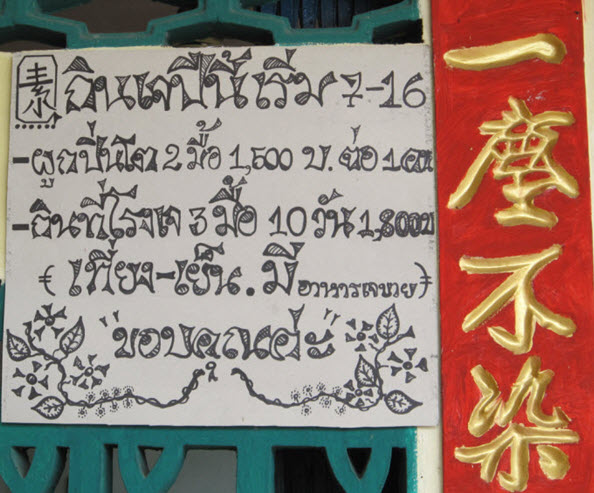 素 กินเจปีนี้เริ่ม 7-16
-ผูกปิ่นโต 2 มื้อ 1,500 บ. ต่อ 1 คน
-กินที่โรงเจ 3 มื้อ 10 วัน 1,800 บ
(เที่ยง-เย็น. มีอาหารเจขาย)
"ขอบคุณค่ะ"
一塵不染